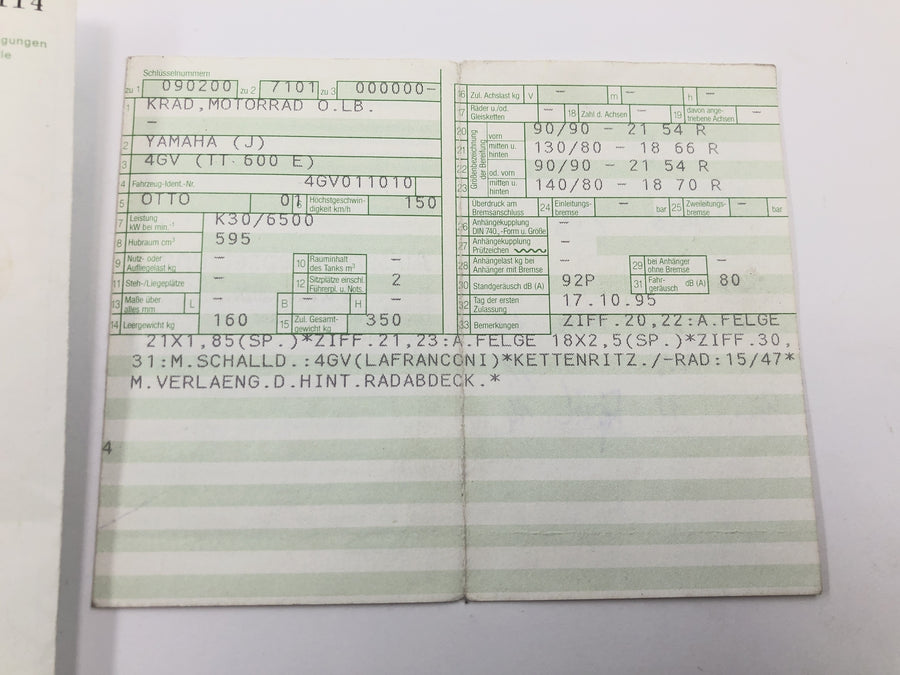 114
gungen
ie
Schlüsselnummern
zu 1 090200 zu 2 7101 zu 3 000000-
1 KRAD,MOTORRAD O.LB.
-
2 YAMAHA (J)
3 4GV (TT 600 E)
4 Fahrzeug-Ident.-Nr. 4GV011010
5 OTTO 01 6 Höchstgeschwindigkeit km/h 150
7 Leistung kW bei min.-1 K30/6500
8 Hubraum cm³ 595
9 Nutz- oder Aufliegelast kg - 10 Rauminhalt des Tanks m³ -
11 Steh-/Liegeplätze - 12 Sitzplätze einschl. Führerpl. u. Nots. 2
13 Maße über alles mm L - B - H -
14 Leergewicht kg 160 15 Zul. Gesamtgewicht kg 350
16 Zul. Achslast kg V - m - h -
17 Räder u./od. Gleisketten - 18 Zahl d. Achsen - 19 davon angetriebene Achsen -
Größenbezeichnung der Bereifung
20 vorn 90/90 - 21 54 R
21 mitten u. hinten 130/80 - 18 66 R
22 od. vorn 90/90 - 21 54 R
23 mitten u. hinten 140/80 - 18 70 R
Überdruck am Bremsanschluss 24 Einleitungsbremse - bar 25 Zweileitungsbremse - bar
26 Anhängekupplung DIN 740..-Form u. Größe -
27 Anhängekupplung Prüfzeichen -
28 Anhängelast kg bei Anhänger mit Bremse - 29 bei Anhänger ohne Bremse -
30 Standgeräusch dB (A) 92P 31 Fahrgeräusch dB (A) 80
32 Tag der ersten Zulassung 17.10.95
33 Bemerkungen ZIFF.20,22:A.FELGE
21X1,85(SP.)*ZIFF.21,23:A.FELGE 18X2,5(SP.)*ZIFF.30,
31:M.SCHALLD.:4GV(LAFRANCONI)*KETTENRITZ./-RAD:15/47*
M.VERLAENG.D.HINT.RADABDECK.*
4